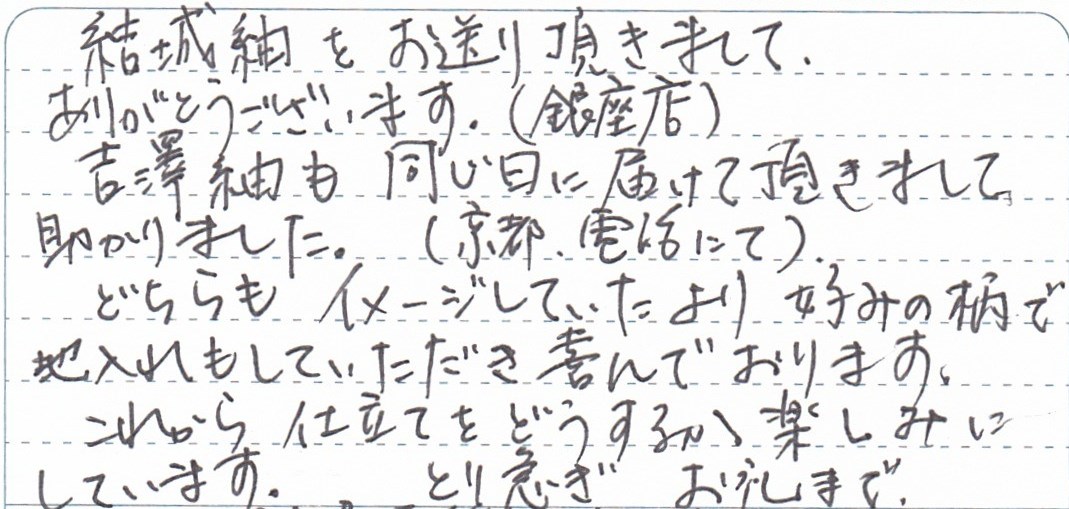 結城紬をお送り頂きまして、
ありがとうございます。(銀座店)
吉澤紬も同じ日に届けて頂きまして
助かりました。(京都、電話にて)。
どちらもイメージしていたより好みの柄で
地入れもしていただき喜んでおります。
これから仕立てをどうするか、楽しみに
しています。 とり急ぎ お礼まで。